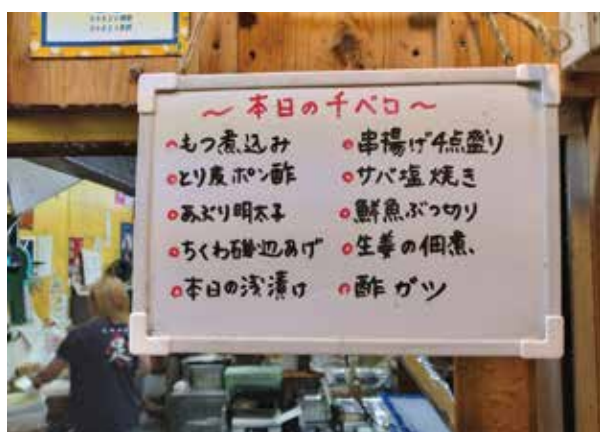 ～本日の千ベロ～
もつ煮込み
とり皮ポン酢
あぶり明太子
ちくわ磯辺あげ
本日の浅漬け
串揚げ4点盛り
サバ塩焼き
鮮魚ぶつ切り
生姜の佃煮
酢ガツ